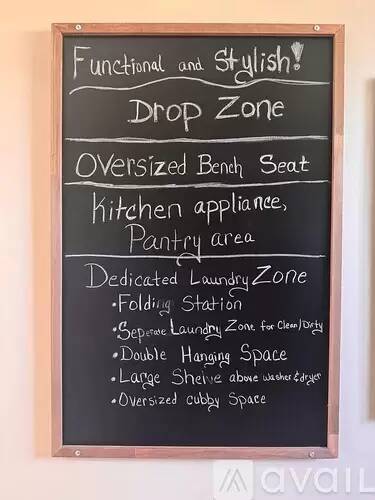 Functional and Stylish!
Drop Zone
Oversized Bench Seat
Kitchen appliance,
Pantry area
Dedicated Laundry Zone
• Folding Station
• Seperate Laundry Zone for Clean/Dirty
• Double Hanging Space
• Large Shelve above washer & dryer
• Oversized cubby Space
avail